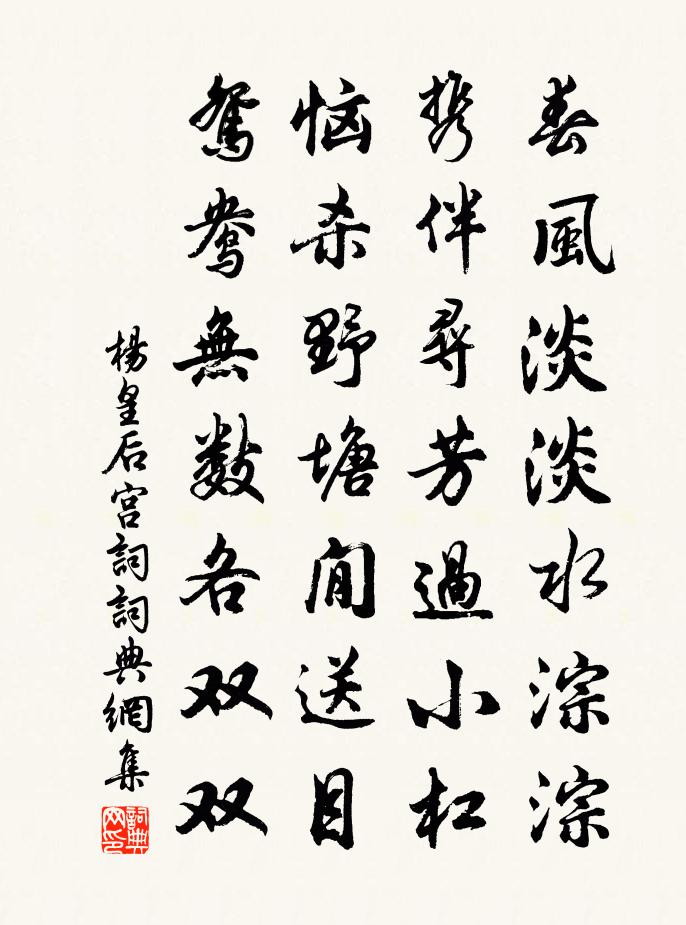 春風淡淡水淙淙
携伴尋芳過小杠
恼杀野塘閒送目
鴛鴦無数各双双
楊皇后宫詞詞典網集
詞典网印